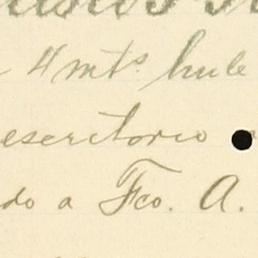 4 mts. hule
escritorio
do a Fco. A.